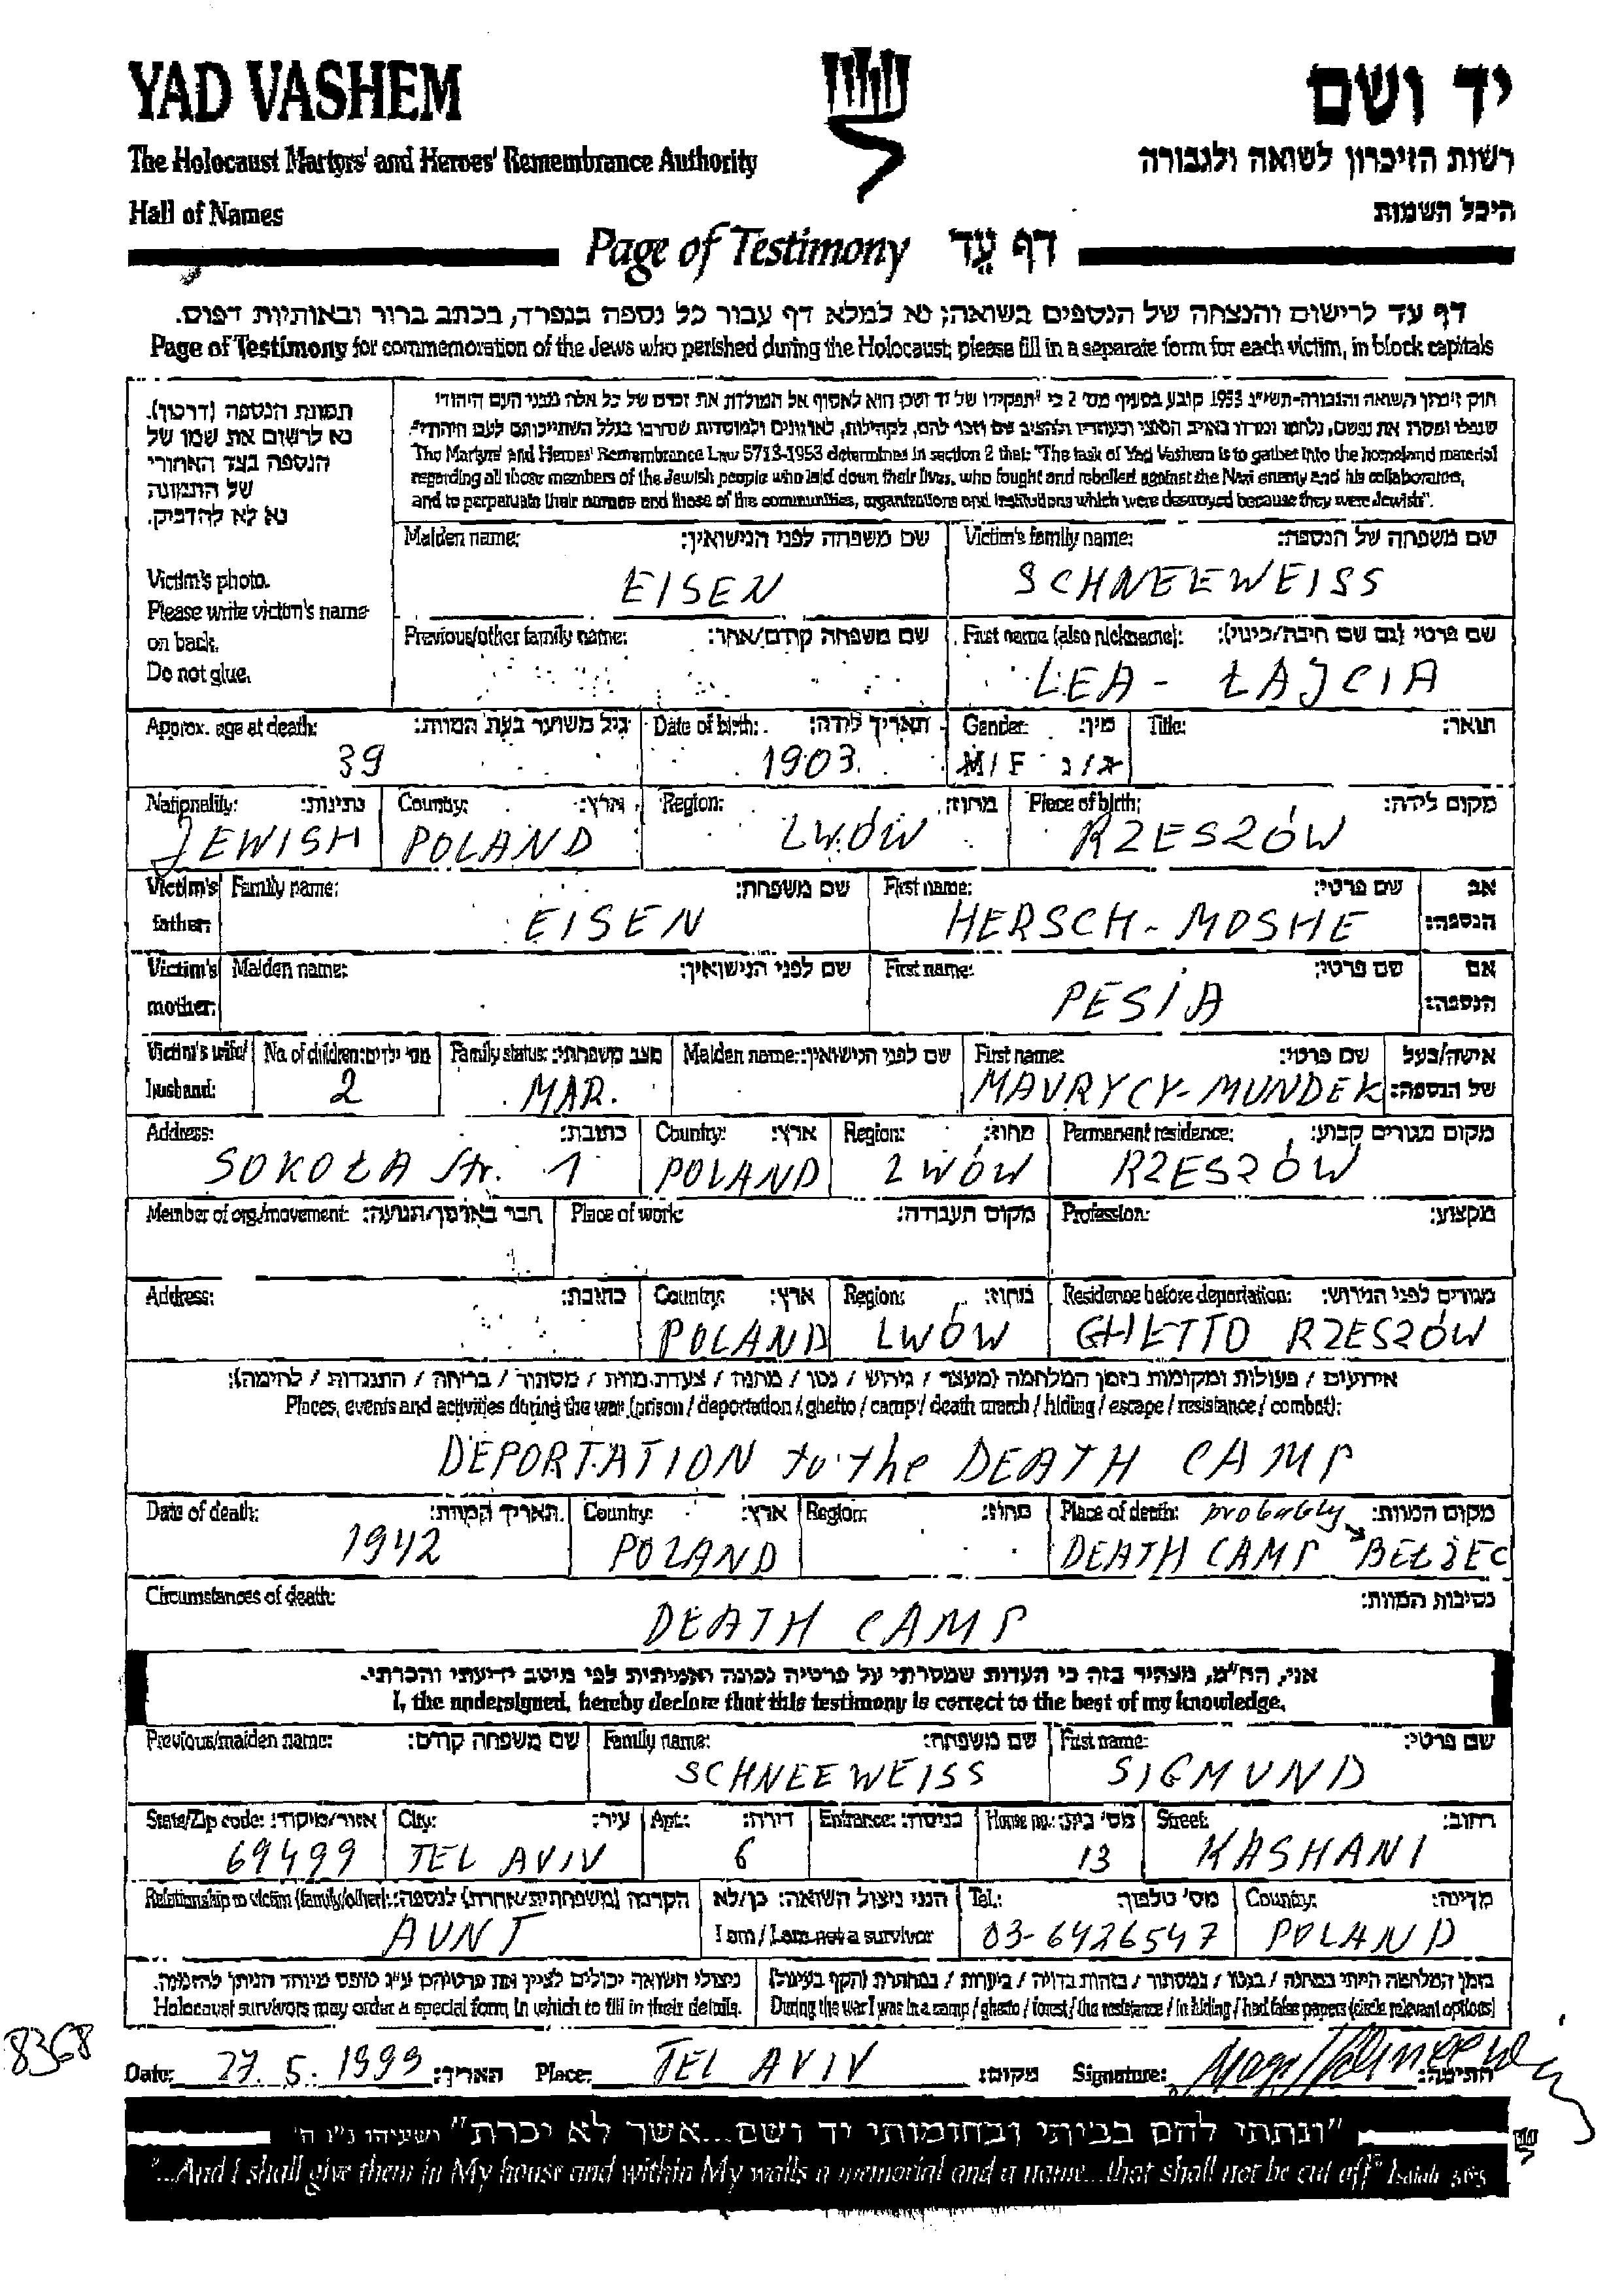 YAD VASHEM
יד ושם
The Holocaust Martyrs' and Heroes' Remembrance Authority
רשות הזיכרון לשואה ולגבורה
Hall of Names
היכל השמות
Page of Testimony דף עד
דף עד לרישום והנצחה של הנספים בשואה; נא למלא דף עבור כל נספה בנפרד, בכתב ברור ובאותיות דפוס.
Page of Testimony for commemoration of the Jews who perished during the Holocaust; please fill in a separate form for each victim, in block capitals
תמונת הנספה (דרכון).
נא לרשום את שמו של
הנספה בצד האחורי
של התמונה
נא לא להדביק.
Victim's photo.
Please write victim's name
on back.
Do not glue.
חוק זיכרון השואה והגבורה-תשי"ג 1953 קובע בסעיף מס' 2 כי "תפקידו של יד ושם הוא לאסוף אל המולדת את זכרם של כל אלה מבני העם היהודי
The Martyrs' and Heroes' Remembrance Law 5713-1953 determines in section 2 that: "The task of Yad Vashem is to gather into the homeland material
regarding all those members of the Jewish people who laid down their lives, who fought and rebelled against the Nazi enemy and his collaborators,
and to perpetuate their names and those of the communities, organizations and institutions which were destroyed because they were Jewish".
Maiden name: שם משפחה לפני הנישואין:
EISEN
Victim's family name: שם משפחה של הנספה:
SCHNEEWEISS
Previous/other family name: שם משפחה קודם/אחר:
First name (also nickname): שם פרטי (גם שם חיבה/כינוי):
LEA - ŁAJCIA
Approx. age at death: גיל משוער בעת המוות:
39
Date of birth: תאריך לידה:
1903
Gender: מין:
M/F ז/נ
Title: תואר:
Nationality: נתינות:
JEWISH
Country: ארץ:
POLAND
Region: מחוז:
LWÓW
Place of birth: מקום לידה:
RZESZÓW
Victim's father: אב הנספה:
Family name: שם משפחה:
EISEN
First name: שם פרטי:
HERSCH - MOSHE
Victim's mother: אם הנספה:
Maiden name: שם לפני הנישואין:
First name: שם פרטי:
PESIA
Victim's wife/ husband: אישה/בעל של הנספה:
No. of children: מס' ילדים:
2
Family status: מצב משפחתי:
MAR.
Maiden name: שם לפני הנישואין:
First name: שם פרטי:
MAURYCY-MUNDEK
Address: כתובת:
SOKOŁA Str. 1
Country: ארץ:
POLAND
Region: מחוז:
LWÓW
Permanent residence: מקום מגורים קבוע:
RZESZÓW
Member of org./movement: חבר בארגון/תנועה:
Place of work: מקום העבודה:
Profession: מקצוע:
Address: כתובת:
Country: ארץ:
POLAND
Region: מחוז:
LWÓW
Residence before deportation: מגורים לפני הגירוש:
GHETTO RZESZÓW
אירועים / פעולות ומקומות בזמן המלחמה (מעצר / גירוש / גטו / מחנה / צעדת מוות / מסתור / בריחה / התנגדות / לחימה):
Places, events and activities during the war (prison / deportation / ghetto / camp / death march / hiding / escape / resistance / combat):
DEPORTATION to the DEATH CAMP
Date of death: תאריך המוות:
1942
Country: ארץ:
POLAND
Region: מחוז:
Place of death: מקום המוות:
probably
DEATH CAMP BEŁŻEC
Circumstances of death: נסיבות המוות:
DEATH CAMP
אני, הח"מ, מצהיר בזה כי העדות שמסרתי על פרטיה נכונה ואמיתית לפי מיטב ידיעתי והכרתי.
I, the undersigned, hereby declare that this testimony is correct to the best of my knowledge.
Previous/maiden name: שם משפחה קודם:
Family name: שם משפחה:
SCHNEEWEISS
First name: שם פרטי:
SIGMUND
State/Zip code: אזור/מיקוד:
69499
City: עיר:
TEL AVIV
Apt.: דירה:
6
Entrance: כניסה:
House no.: מס' בית:
13
Street: רחוב:
KASHANI
Relationship to victim (family/other): הקרבה (משפחתית/אחרת) לנספה:
AUNT
הנני ניצול השואה: כן/לא
I am / I am not a survivor
Tel.: מס' טלפון:
03-6426547
Country: מדינה:
POLAND
ניצולי השואה יכולים לציין את פרטיהם ע"ג טופס מיוחד הניתן להזמנה.
Holocaust survivors may order a special form in which to fill in their details.
בזמן המלחמה הייתי במחנה / בגטו / במסתור / בזהות בדויה / ביערות / במחתרת (הקף בעיגול)
During the war I was in a camp / ghetto / forest / the resistance / in hiding / had false papers (circle relevant options)
8368
Date: 27.5.1999 תאריך:
Place: TEL AVIV מקום:
Signature: חתימה:
"ונתתי להם בביתי ובחומותי יד ושם...אשר לא יכרת" ישעיהו נ"ו ה'
"...And I shall give them in My house and within My walls a memorial and a name...that shall not be cut off" Isaiah 56:5